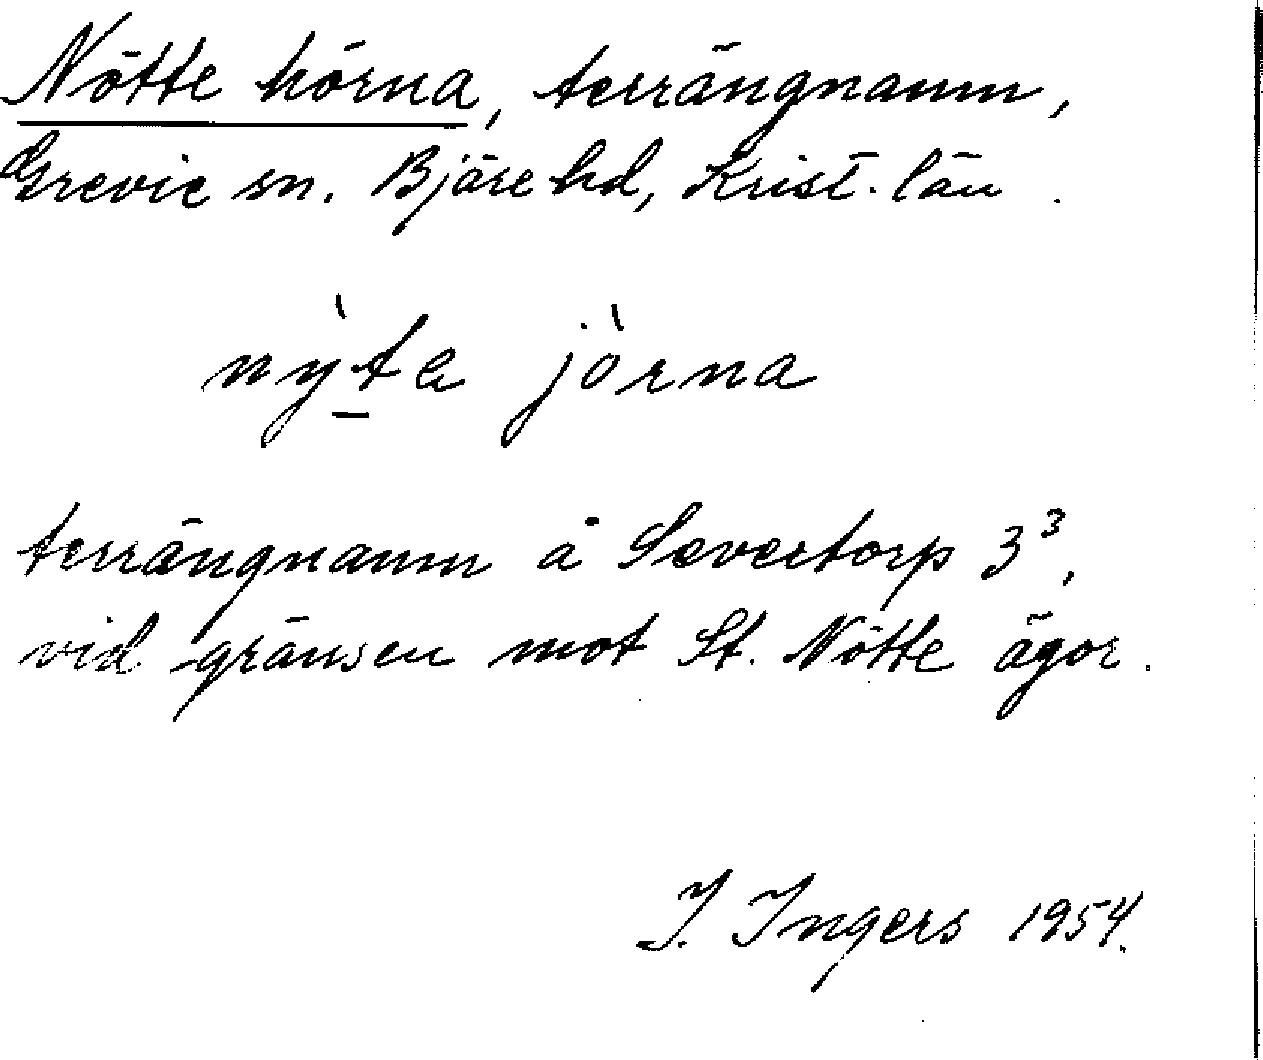 Nötte hörna, terrängnamn,
Grevie sn. Bjäre hd, Krist. län.
ny̍ta jö̀rna
terrängnamn å Severtorp 3³,
vid gränsen mot St. Nötte ägor.
I. Ingers 1954.